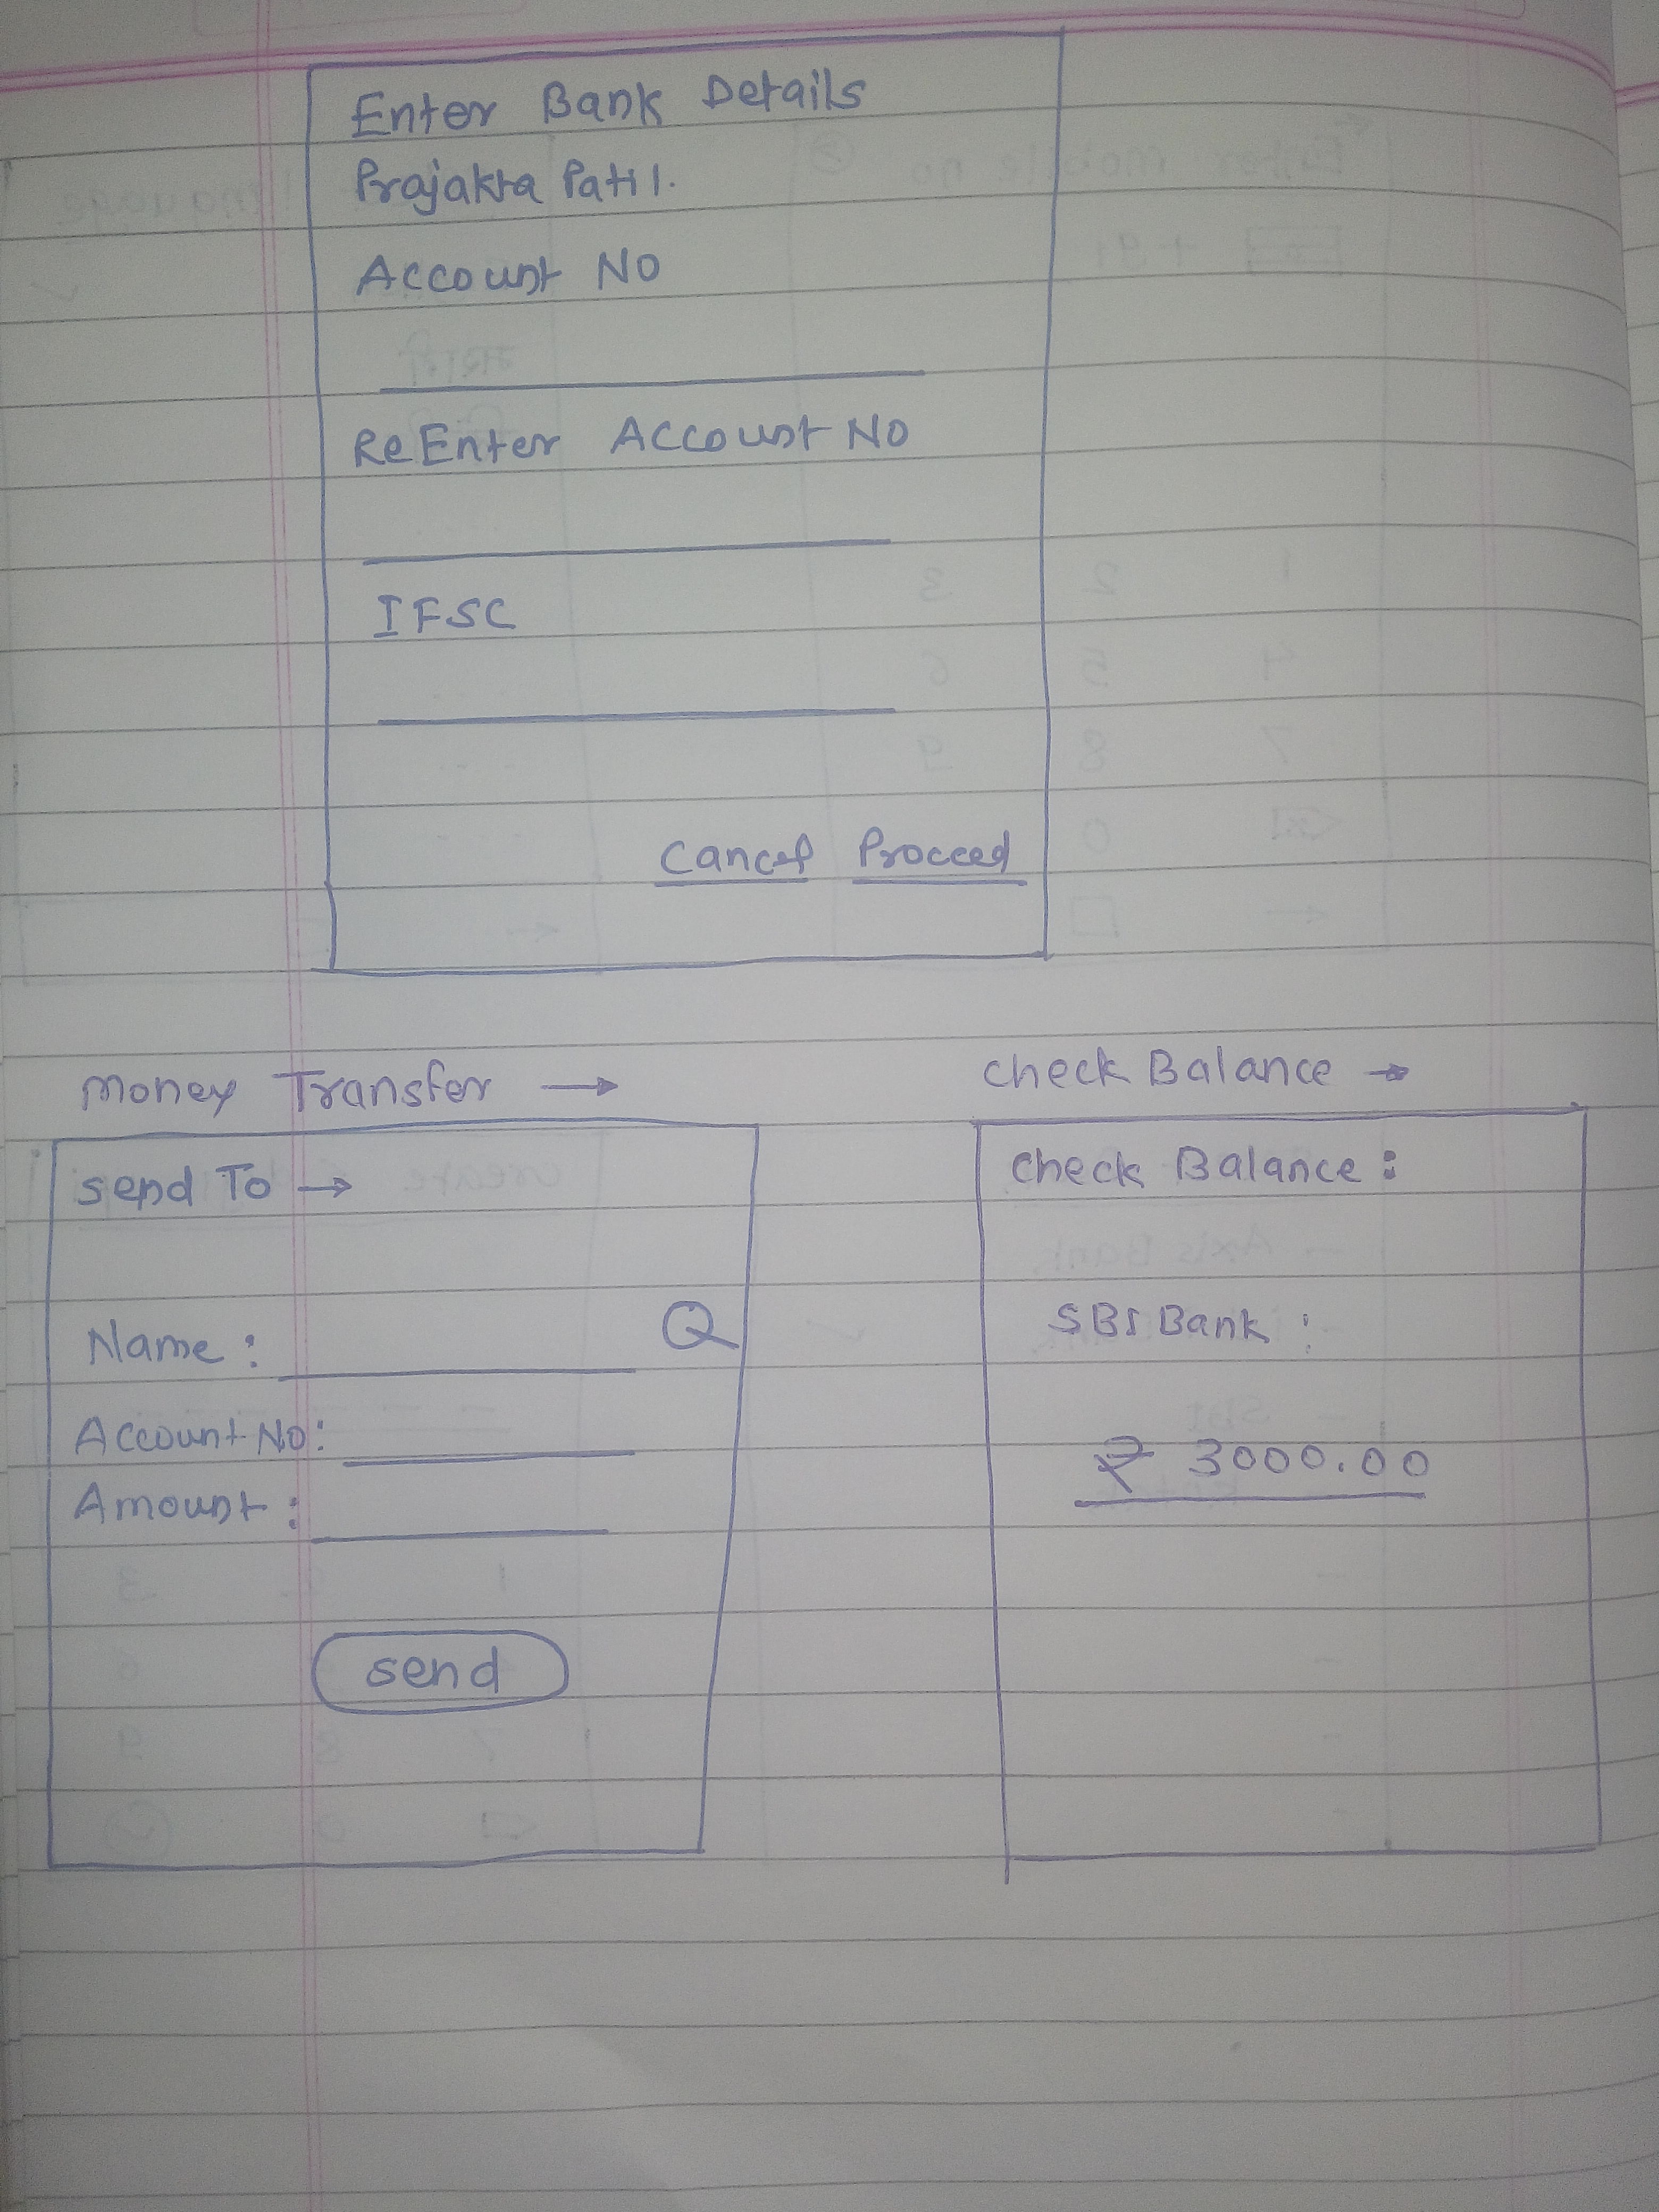 Enter Bank Details
Prajakta Patil.
Account No
ReEnter Account No
IFSC
Cancel Procced
Money Transfer →
Send To →
Name :
Account No:
Amount :
Send
Check Balance →
Check Balance :
SBI Bank :
₹ 3000.00